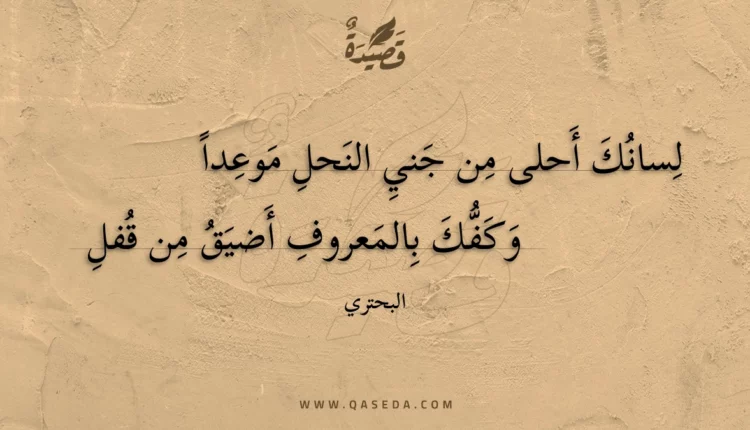 قَصِيْدَةٌ
لِسانُكَ أَحلى مِن جَنيِ النَحلِ مَوعِداً
وَكَفُّكَ بِالمَعروفِ أَضيَقُ مِن قُفلِ
البحتري
WWW.QASEDA.COM